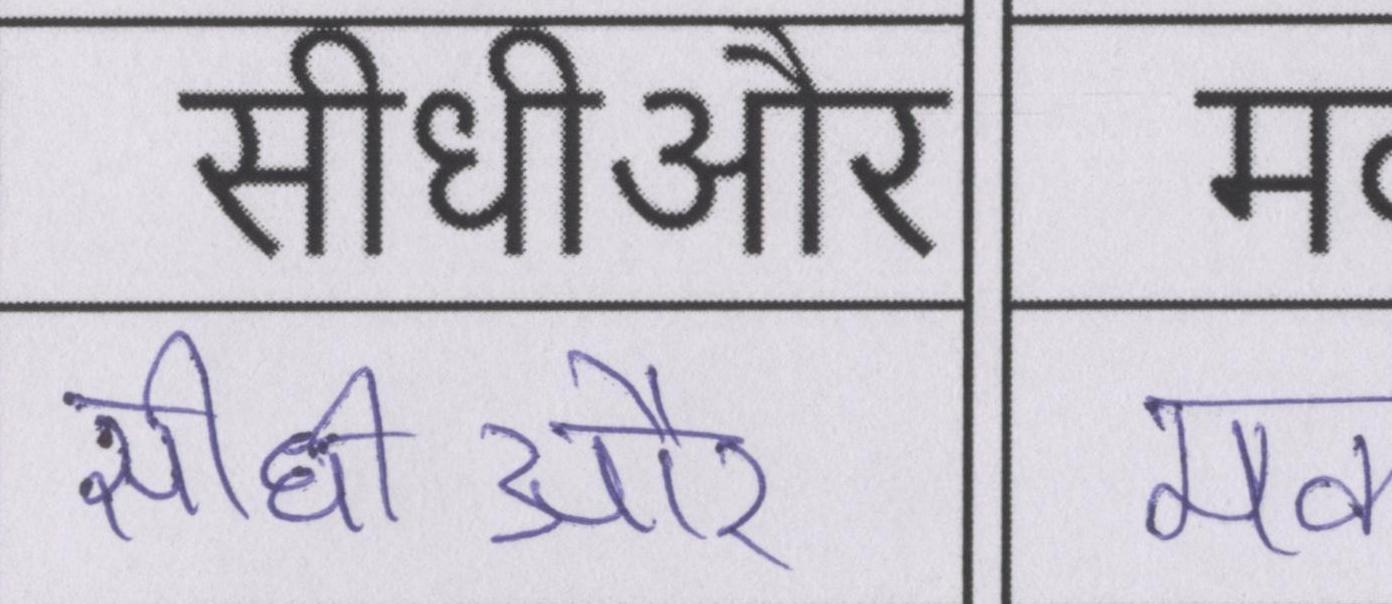 सीधीऔर
सीधी और